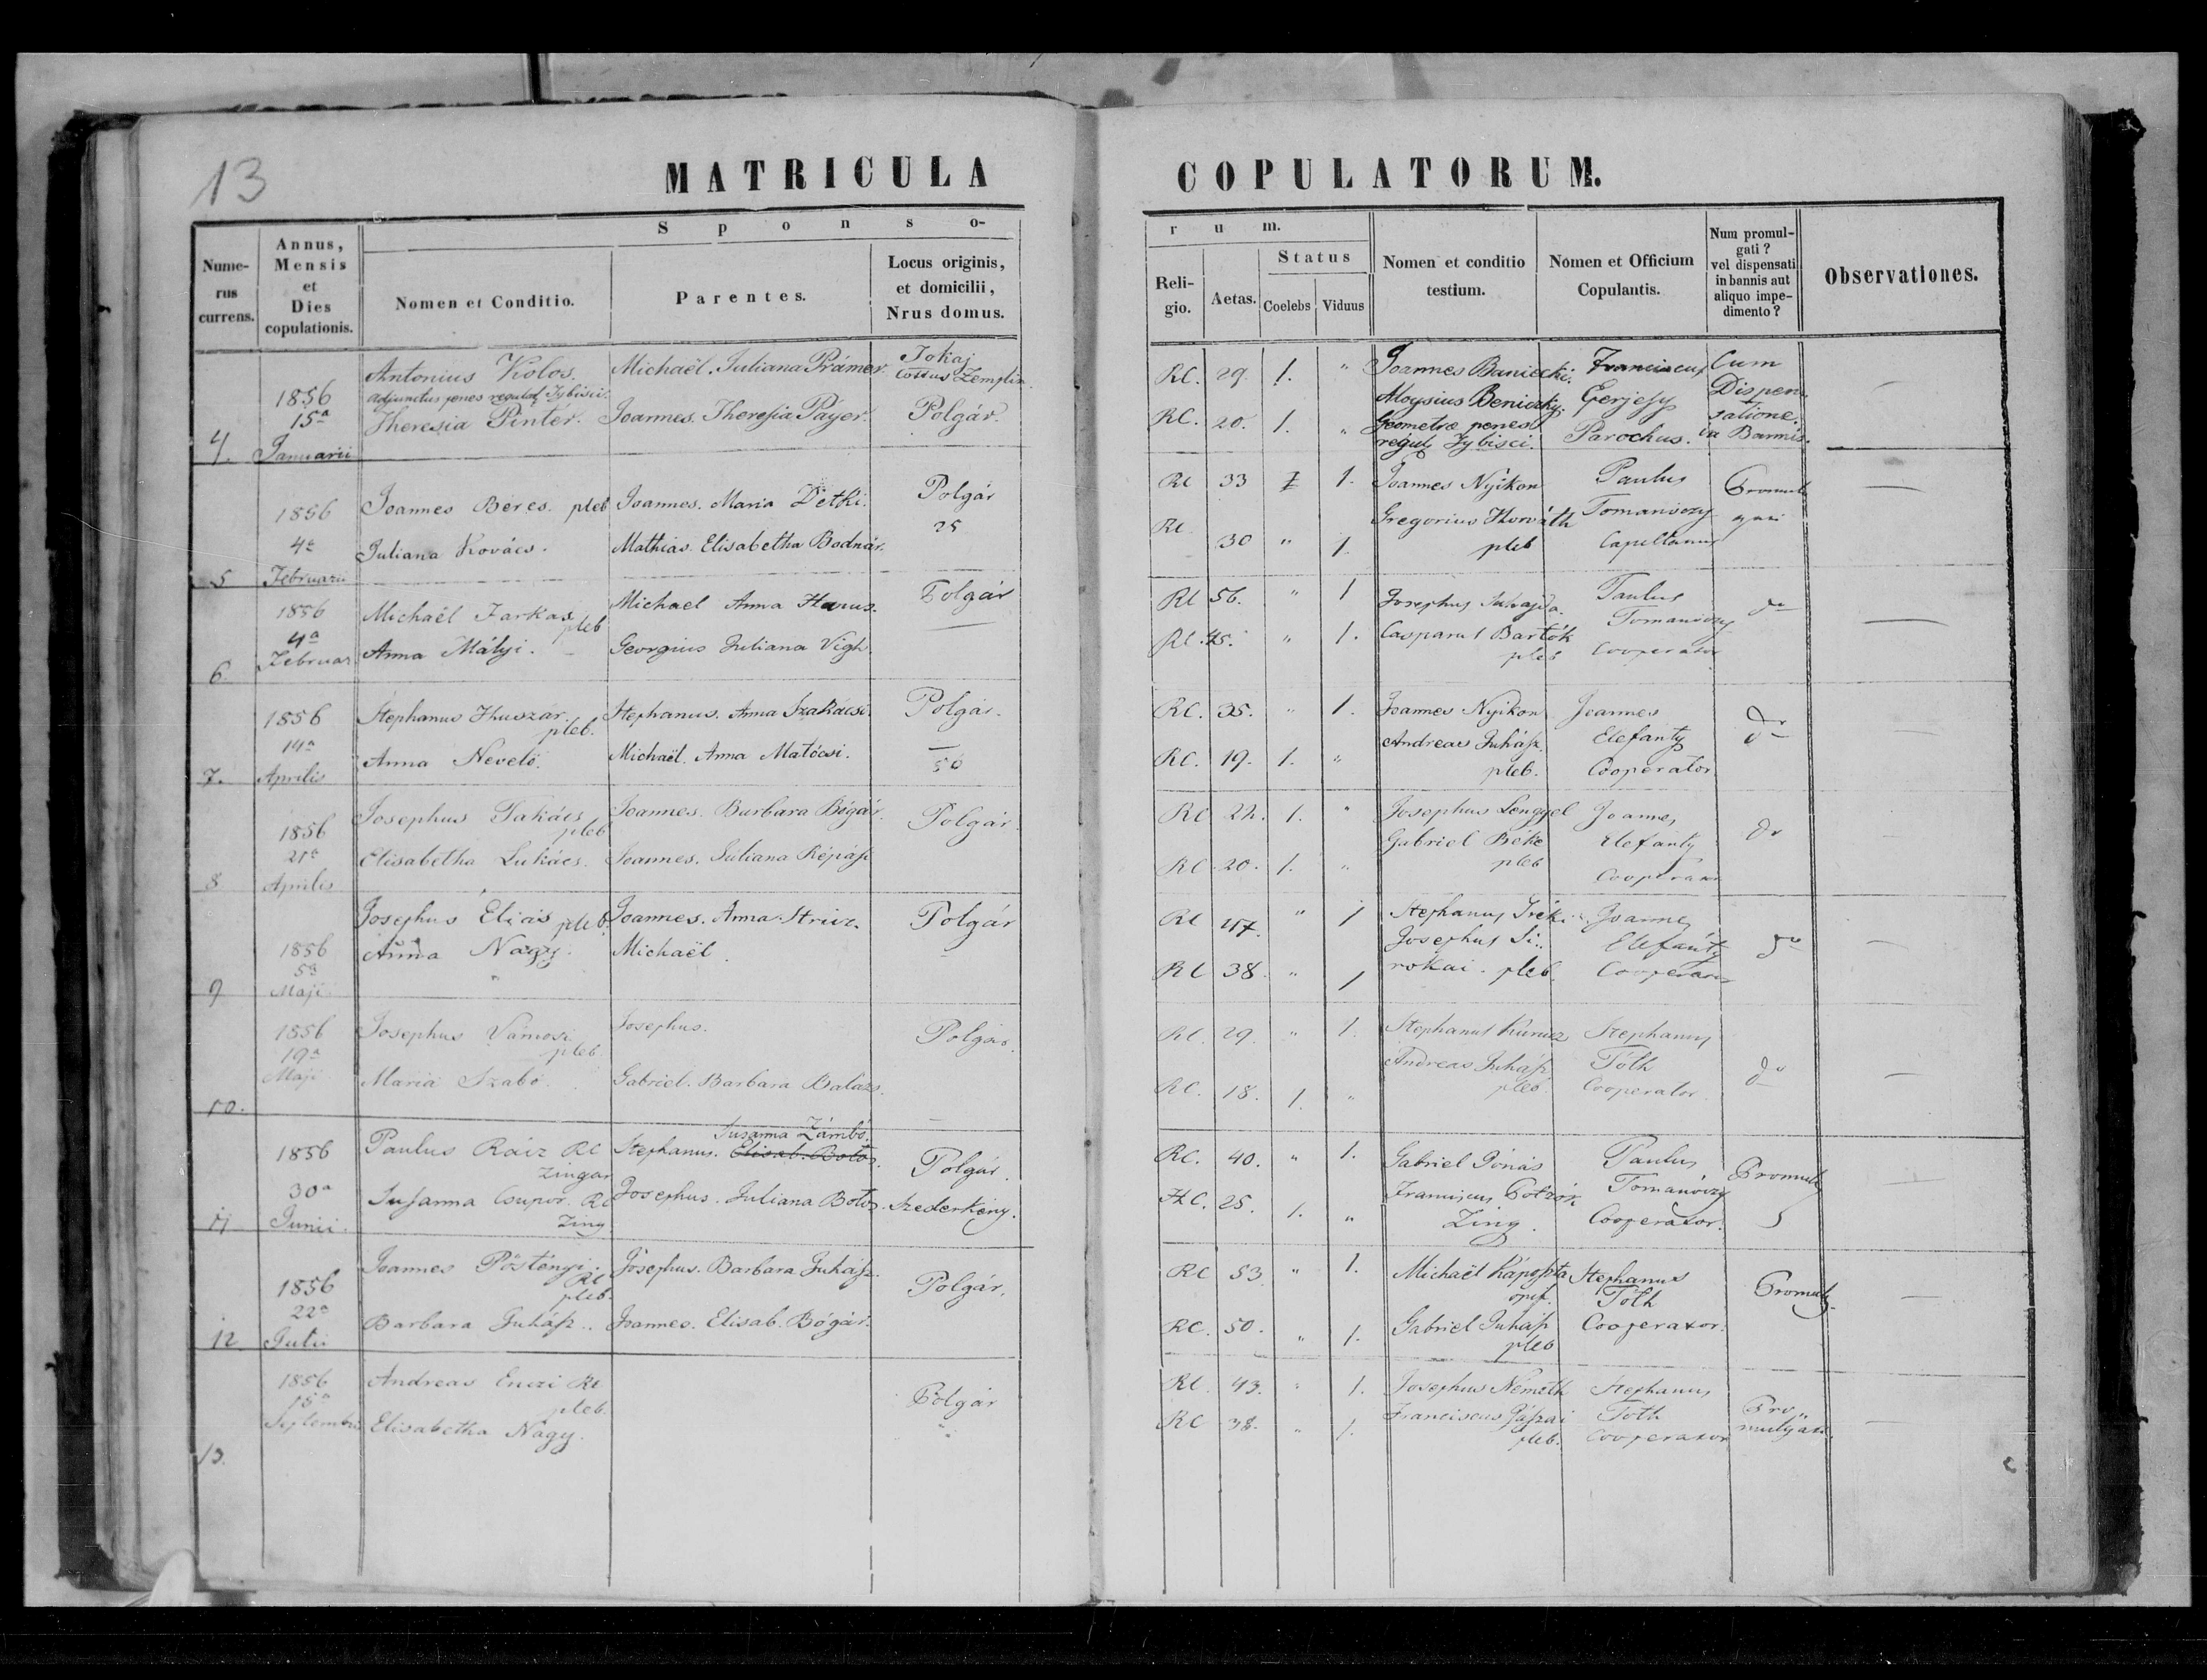 13
MATRICULA COPULATORUM.
Sponso-
rum.
Numerus currens.
Annus, Mensis et Dies copulationis.
Nomen et Conditio.
Parentes.
Locus originis, et domicilii, Nrus domus.
Religio.
Aetas.
Status
Coelebs
Viduus
Nomen et conditio testium.
Nomen et Officium Copulantis.
Num promulgati? vel dispensati in bannis aut aliquo impedimento?
Observationes.
4. 1856 15a Januarii
Antonius Kolos Michaël. Juliana Prámer. Tokaj
Cottus Zemplin.
Theresia Pinter. Joannes. Theresia Páyer. Polgár.
RC. 29. 1. " Joannes Baniecki. Franciscus Cum
Aloysius Beniczky. Dispen
RC. 20. 1. " Geometræ penes satione
Parochus. in Bannis.
5 1856 4a Februarii
Joannes Béres pleb Joannes. Maria Detki. Polgár
25
Juliana Kovács. Mathias. Elisabetha Bodnár.
RC 33 1. Joannes Nyikon Paulus
Gregorius Horváth
RC 30 " 1. pleb Capellanus
6. 1856 4a Februar
Michaël Farkas pleb Michael Anna Hanus. Polgár
Anna Mályi. Georgius Juliana Vigh.
RC 56. " 1 Josephus Paulus do
RC. 45. " 1. Casparus Bartók
pleb Cooperator
7. 1856 14a Aprilis
Stephanus Huszár. pleb. Stephanus. Anna Szakácsi. Polgár.
Anna Nevelö. Michaël. Anna Matócsi. 50
RC. 35. " 1. Joannes Nyikon Joannes do
Andreas Juhász. Elefanty
RC. 19. 1. " pleb. Cooperator
8 1856 21a Aprilis
Josephus Takács pleb Joannes. Barbara Bógár. Polgár.
Elisabetha Lukács. Joannes. Juliana Répász
RC 22. 1. " Josephus Lengyel Joannes do
Gabriel Béke Elefanty
RC 20. 1. " pleb Cooperator
9 1856 5a Maji
Josephus Eliás pleb. Joannes. Anna Polgár
Anna Nagy. Michaël.
RC 47. " 1 Stephanus Joannes
Josephus Si Elefánty do
RC 38. " 1 rokai. pleb. Cooperator
10. 1856 19a Maji
Josephus Vámosi pleb. Josephus. Polgár.
Maria Szabó. Gabriel. Barbara Balázs.
RC. 29. " 1. Stephanus Kurucz Stephanus
Andreas Juhász Tóth do
RC. 18. 1. " pleb. Cooperator.
11 1856 30a Junii.
Susanna Zámbó.
Paulus Rácz RC Zingar Stephanus. Elisab. Botos. Polgár.
Susanna Csupor. RC Zing Josephus. Juliana Botos. Szederkény.
RC. 40. " 1. Gabriel Jónás Paulus Promulg
Franciscus
RC. 25. 1. " Zing. Cooperator.
12 1856 22a Julii
Joannes Pöstényi. RC pleb. Josephus. Barbara Juhász. Polgár.
Barbara Juhász.. Joannes. Elisab. Bógár.
RC 53. " 1. Michaël Káposzta Stephanus
opif. Tóth Promulg.
RC. 50. " 1. Gabriel Juhász Cooperator.
pleb
13. 1856 15a Septembris
Andreas Enczi RC pleb. Polgár
Elisabetha Nagy.
RC. 43. " 1. Josephus Németh Stephanus
Franciscus Tóth Pro„
RC 38. " 1. pleb. Cooperator mulgati.